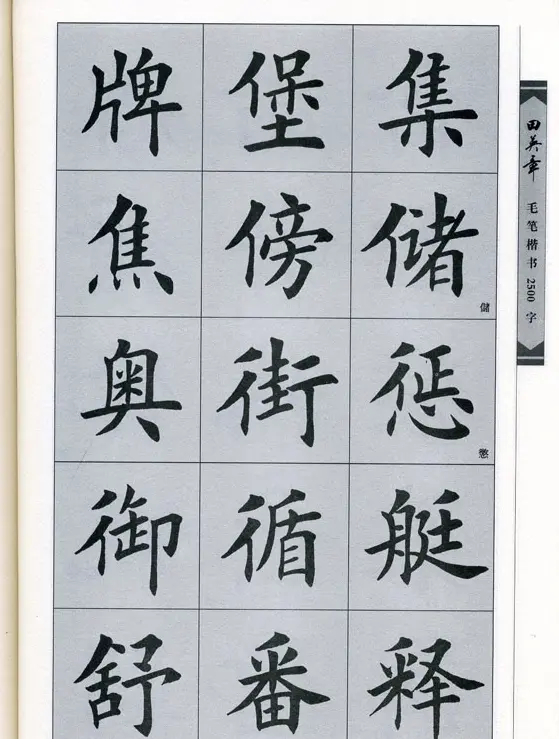 牌 堡 集
焦 傍 储 儲
奥 街 惩 懲
御 循 艇
舒 番 释
田英章 毛笔楷书 2500 字